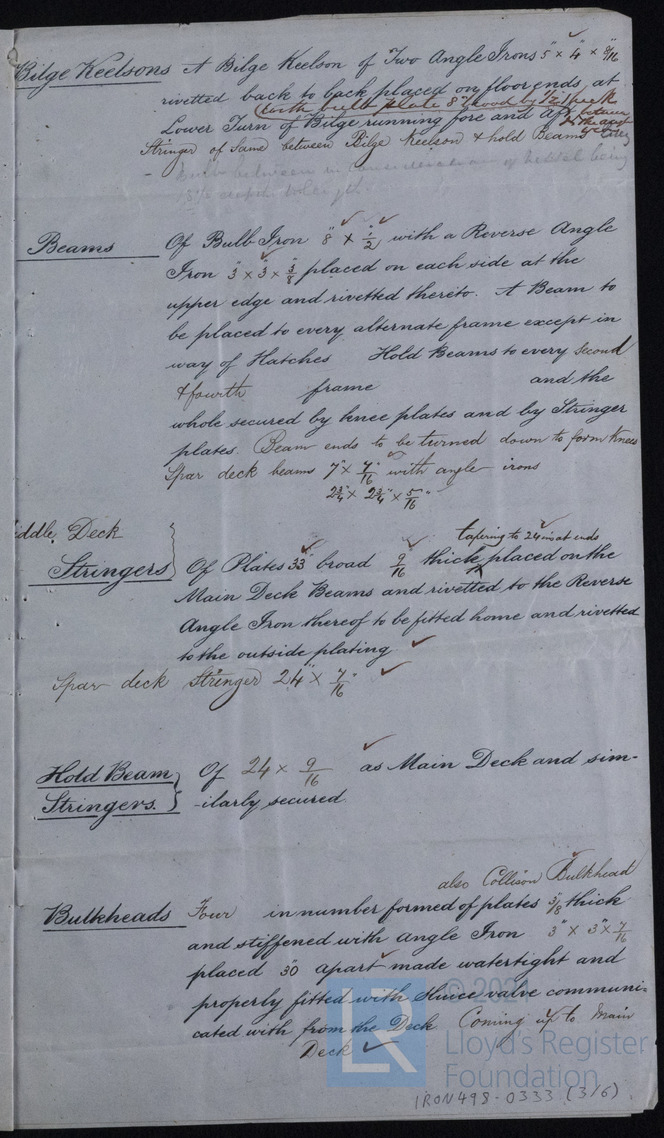 Bilge Keelsons A Bilge Keelson of Two Angle Irons 5" × 4" × 9/16
rivetted back to back placed on floor ends, at
with bulb plate 8" broad by 1/2 thick
Lower Turn of Bilge running fore and aft between
Stringer of Same between Bilge Keelson & hold Beams
Beams Of Bulb Iron 8" × 1/2" with a Reverse Angle
Iron 3" × 3" × 3/8 placed on each side at the
upper edge and rivetted thereto. A Beam to
be placed to every alternate frame except in
way of Hatches Hold Beams to every second
& fourth frame and the
whole secured by knee plates and by Stringer
plates. Beam ends to be turned down to form knees
Spar deck beams 7" × 7/16" with angle irons
2 3/4" × 2 3/4" × 5/16"
iddle Deck
tapering to 24 ins at ends
Stringers Of Plates 33" broad 9/16 thick placed on the
Main Deck Beams and rivetted to the Reverse
Angle Iron thereof to be fitted home and rivetted
to the outside plating
Spar deck Stringer 24" × 7/16"
Hold Beam Stringers. Of 24 × 9/16 as Main Deck and sim-
-ilarly secured
also Collision Bulkhead
Bulkheads Four in number formed of plates 3/8" thick
and stiffened with Angle Iron 3" × 3" × 7/16
placed 30" apart made watertight and
properly fitted with Sluice valve communi-
cated with from the Deck Coming up to Main
Deck
© 2021
LR
Lloyd's Register
Foundation
IRON498-0333 (3/6)